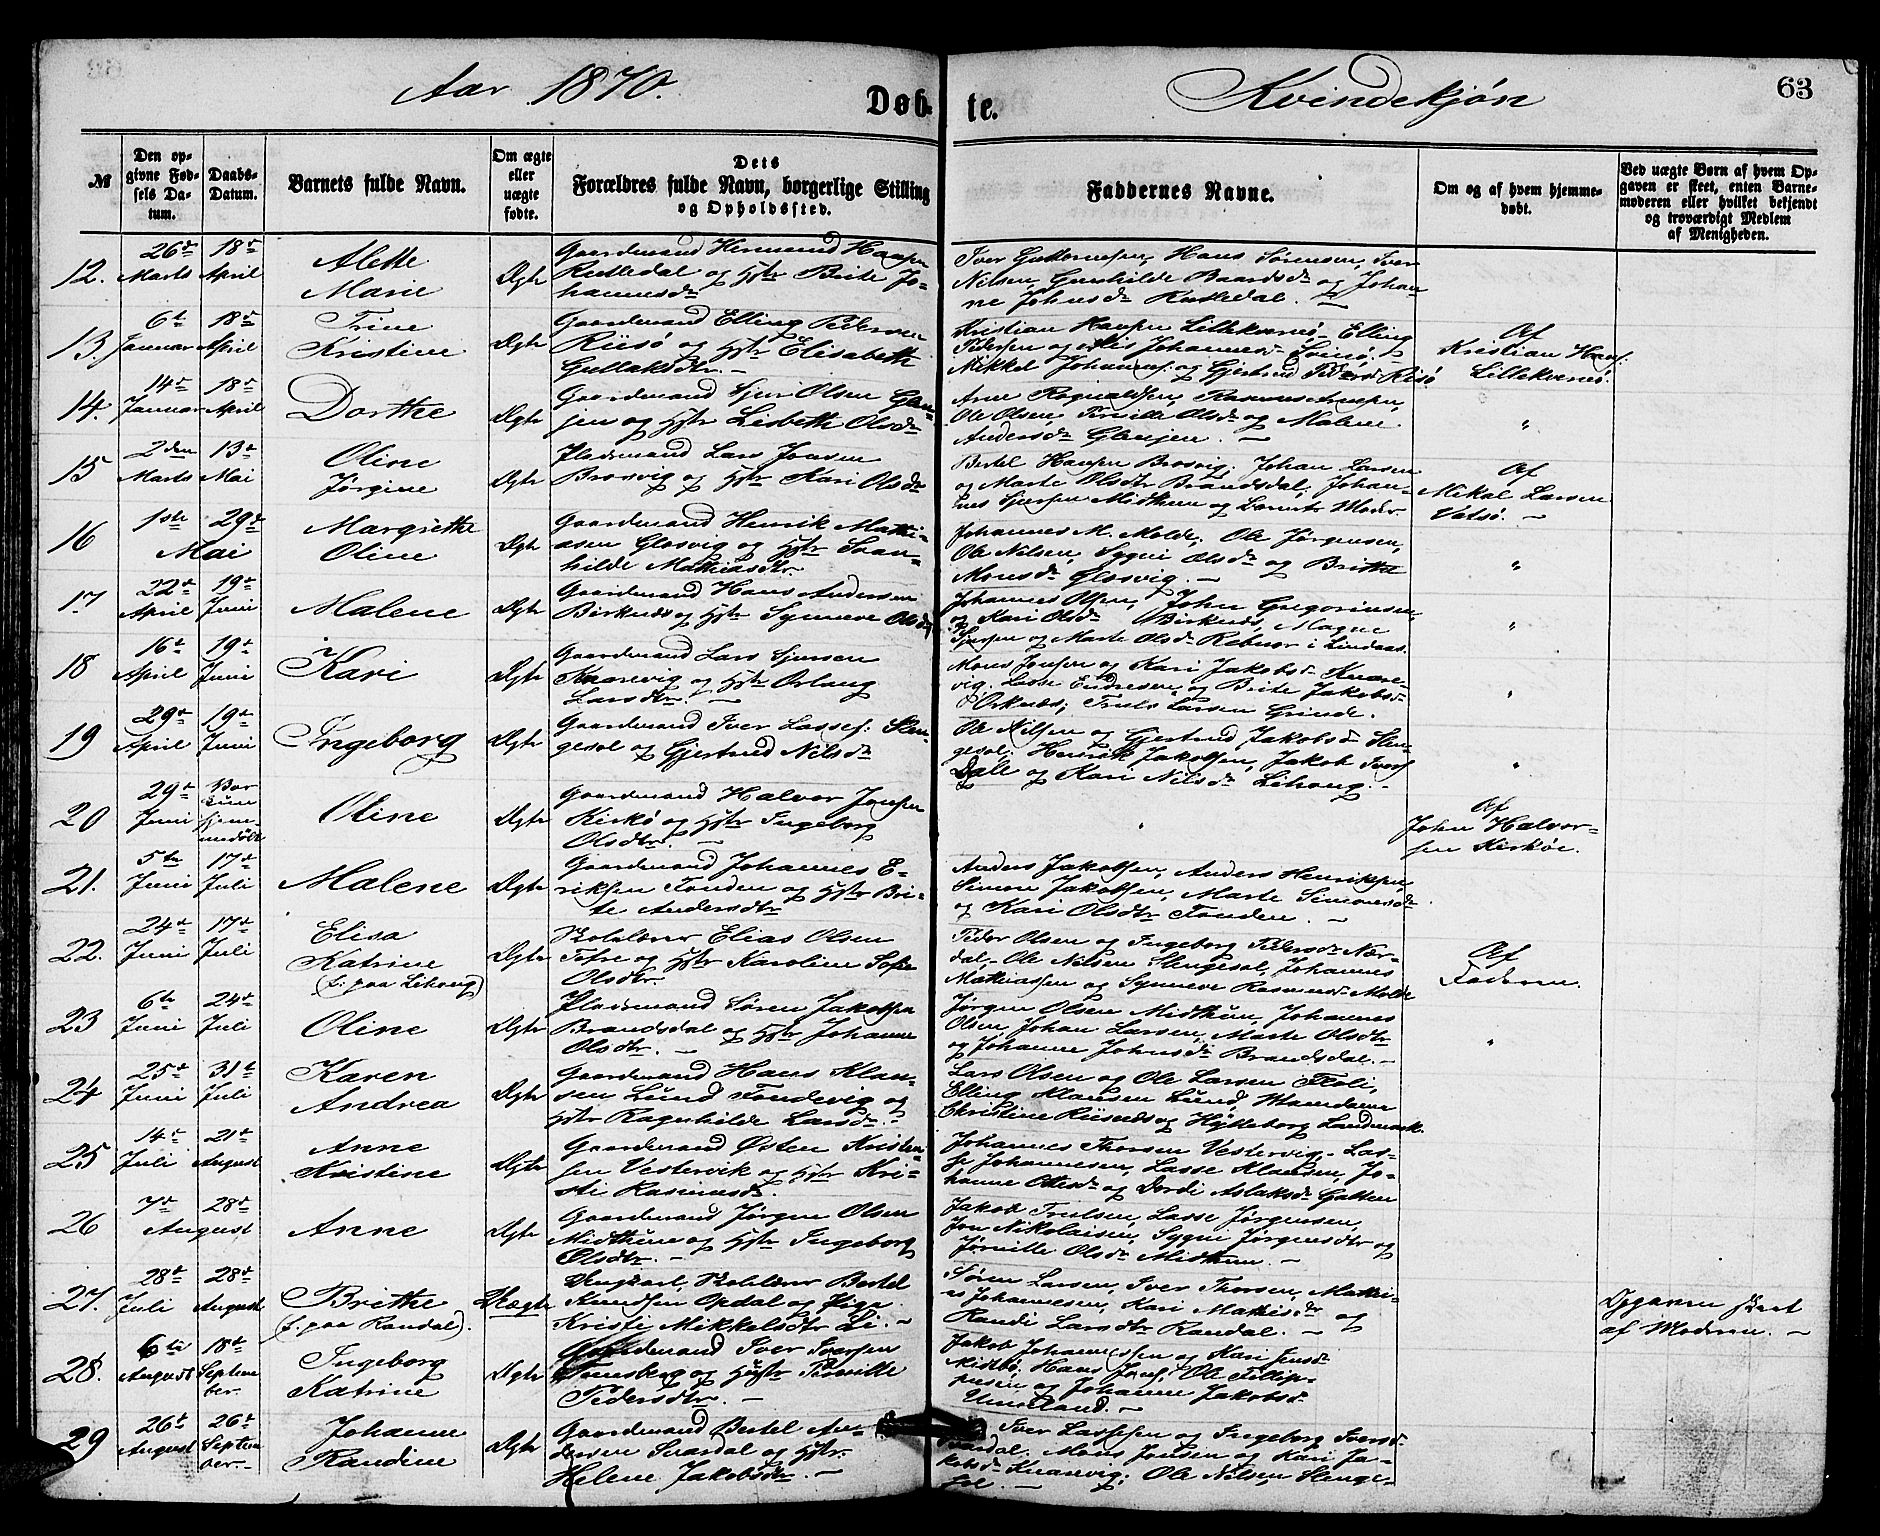 Aar 1870.
Døb-
te.
Kvindekjøn
63
№
Den op-
givne Fød-
sels Da-
tum.
Daabs-
Datum.
Barnets fulde Navn.
Om ægte
eller
uægte
fødte.
Dets
Forældres fulde Navn, borgerlige Stilling
og Opholdssted.
Faddernes Navne.
Om og af hvem hjemme-
døbt.
Ved uægte Børn af hvem Op-
gaven er skeet, enten Barne-
moderen eller hvilket bekjendt
og troværdigt Medlem
af Menigheden.
12.
26de
Marts
18de
April
Alette
Marie
Ægte
Gaardmand Hermund Hansen
Risledal og Hstr Brite Jo-
hannesdr
Iver Guttormsen, Hans Sørensen, Iver
Nilsen, Gunhilde Baardsdr og Johan-
ne Johnsdr
13.
6te
Januar
18de
April
Trine
Kristine
Ægte
Gaardmand Elling Pedersen
Riisø og Hstr Elisabeth
Gullaksdtr. —
Kristian Hansen Lillekvernø, Elling
Pedersen og Johannesdr
Mikkel Johannes. og Gjertrud Pedersdr Risø
Af
Kristian Hans.
Lillekvernø.
14.
14de
Januar
18de
April
Dorthe
Ægte
Gaardmand Sjur Olsen Glen-
jen og Hstr Lisbeth Olsdr
Arne Rognaldsen, Rasmus Arnesen,
Ole Olsen, Pernille Olsdr og Malene
Andersdr Glenjen. —
"
15
2den
Marts
13de
Mai
Oline
Jørgine
Ægte
Pladsmand Lars Jonsen
Brosvig og Hstr Kari Olsdr
Bertel Hansen Brosvig, Johan Larsen
og Marte Olsdtr Brandsdal, Johan-
nes Sjursen Midthun og Barnets Moder.
Af
Mikal Larsen
Vatsø. —
16
1ste 29de
Mai
Margrethe
Oline
Ægte
Gaardmand Henrik Matti-
asen Glosvig og Hstr Svan-
hilde Mathiasdtr.
Johannes M. Molde, Ole Jørgensen,
Ole Nilsen, Sygni Olsdr og Britha
Monsdr Glosvig. —
"
17
22de
April
19de
Juni
Malene
Ægte
Gaardmand Hans Andersen
Birknes og Hstr Synneve Olsd.
Johannes Olsen, John Gregoriusen,
og Kari Olsdr Birknes, Magne
Sjursen og Marte Olsdr Rebnor i Lindaas.
"
18
16de
April
19de
Juni
Kari
Ægte
Gaardmand Lars Sjursen
Knarvig og Hstr Orlaug
Larsdtr. —
Mons Jonsen og Kari Jakobsdr Knar-
vig. Lasse Endresen og Brite Jakobsdr
Orknes; Truls Larsen Grinde.
"
19
29de
April
19de
Juni
Ingeborg
Ægte
Gaardmand Iver Lasses. Slen-
gesol og Gjertrud Nilsdr
Ole Nilsen og Gjertrud Jakobsdr Slen-
gesol; Henrik Jakobsen, Jakob Ivers.
Dale og Kari Nilsdr Lihoug. —
"
20
29de
Juni
Bar
kun
hjem-
medøbt
Oline
Ægte
Gaardmand Halvor Jonsen
Kirkø og Hstr Ingeborg
Olsdtr. —
Af
John Halvor-
sen Kirkøe.
21.
5te
Juni
17de
Juli
Malene
Ægte
Gaardmand Johannes E-
riksen Fonden og Hstr Bri-
te Andersdtr
Anders Jakobsen, Anders Henriksen,
Simon Jakobsen, Marte Simonsdr
og Kari Olsdtr Fonden. —
22.
24de
Juni
17de
Juli
Elisa
Katrine
(f. paa Lihoug)
Ægte
Skolelærer Elias Olsen
Tofre og Hstr Karoline Sofie
Olsdtr.
Peder Olsen og Ingeborg Pedersdr Nær-
dal. Ole Nilsen Slengesol, Johannes
Mathiassen og Synneve Rasmusdr Molde
Af
Faderen.
23
6te
Juni
24de
Juli
Oline
Ægte
Pladsmand Søren Jakobsen
Brandsdal og Hstr Johanne
Olsdtr. —
Jørgen Olsen Midthun, Johannes
Olsen, Johan Larsen, Marte Olsdtr
og Johanne Johnsdr Brandsdal. —
"
24
25de
Juni
31te
Juli
Karen
Andrea
Ægte
Gaardmand Hans Klau-
sen Lund Fondevig og
Hstr Ragnhilde Larsdr. —
Lars Olsen og Ole Larsen Floli,
Elling Klausen Lund, Madame
Christine Riisnes og Hylleborg Landmark.
25
14de
Juli
21de
August
Anne
Kristine
Ægte
Gaardmand Østen Kristen-
sen Vestervik og Hstr Kri-
sti Rasmusdr.
Johannes Thorsen Vestervig, Las-
se Johannesen, Lasse Klausen, Jo-
hanne Ottesdr og Dordi Aslaksdr Gatten
26
7de 28de
August
Anne
Ægte
Gaardmand Jørgen Olsen
Midthun og Hstr Ingeborg
Olsdtr. —
Jakob Trulsen, Lasse Jørgensen,
Jon Nikolaisen, Sygni Jørgensdtr og
Jørnille Olsdr Midthun. —
27.
28de
Juli
28de
August
Brithe
(f. paa Randal).
Uægte
Ungkarl, Skolelærer Bertel
Knudsen Opdal og Pige
Kristi Mikkelsdtr Li. —
Søren Larsen, Iver Thorsen, Matti-
as Johannesen, Kari Mattisdr og
Randi Larsdtr Randal. —
Opgaven skeet
af Moderen. —
28.
6te
August
18de
Septem-
ber.
Ingeborg
Katrine
Ægte
Gaardmand Iver Iversen
Tunsberg og Hustr Pernille
Pedersdtr. —
Jakob Johannessen og Kari Jensdr
Midtbø, Hans Jens., Ole Fillip-
pusen og Johanne Jakobsdr
29
26de
August
26de
Septem-
ber.
Johanne
Randine
Ægte
Gaardmand Bertel An-
dersen Svardal og Hstr.
Helene Jakobsdr. —
Iver Lassesen og Ingeborg Iversdr
Svardal. Mons Jonsen og Kari Ja-
kobsdr Knarvig; Ole Nilsen Slenge-
sol. —